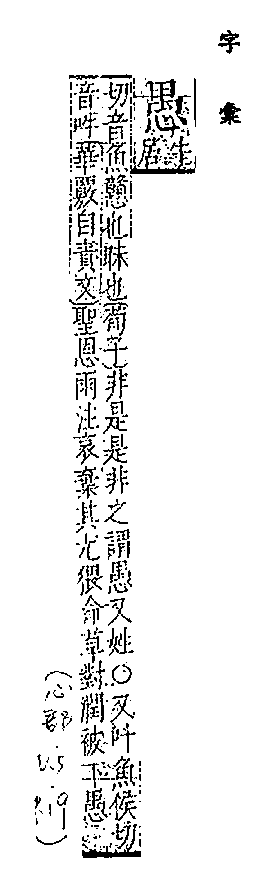 字彙
愚
牛居
切音魚戇也昧也荀子非是是非之謂愚又姓○又叶魚侯切
音吽華覈自責文聖恩雨注哀棄其尤猥命草對潤被下愚
(心部.